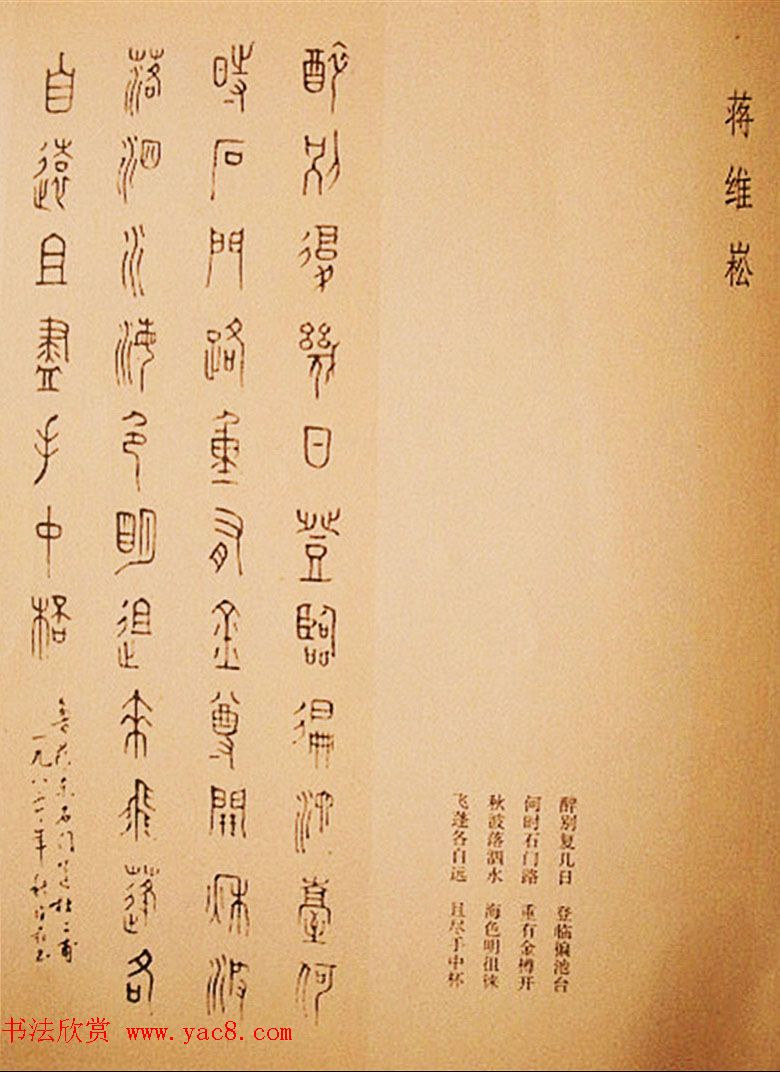 蒋维崧
醉别复几日 登临偏池台
何时石门路 重有金樽开
秋波落泗水 海色明徂徕
飞蓬各自远 且尽手中杯
醉別復幾日登臨徧池臺何
時石門路重有金尊開秌波
落泗水海色明徂來飛蓬各
自遠且盡手中桮
魯郡東石門送杜二甫
一九八二年秋
书法欣赏 www.yac8.com